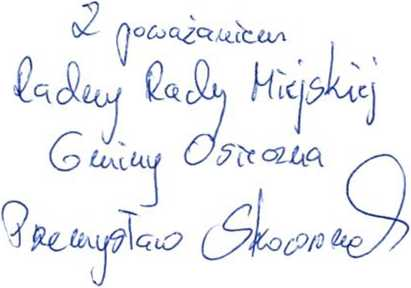 Z poważaniem
Radny Rady Miejskiej
Gminy Osieczna
Przemysław Skowron